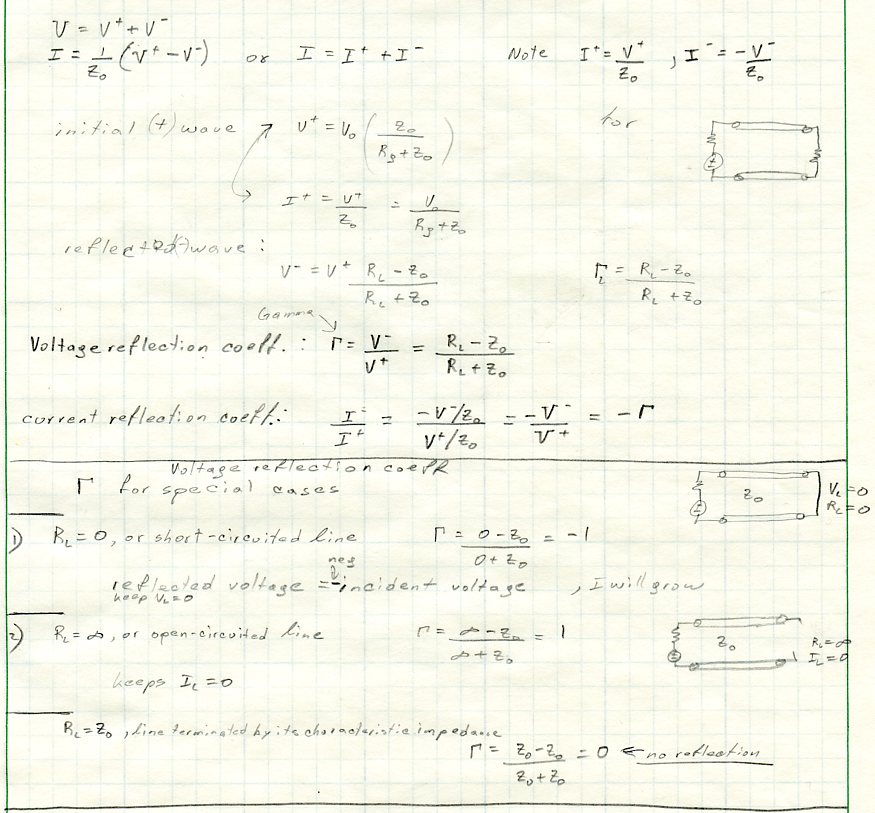 V = V⁺ + V⁻
I = 1/Z₀ (V⁺ - V⁻) or I = I⁺ + I⁻ Note I⁺ = V⁺/Z₀ , I⁻ = -V⁻/Z₀
initial (+) wave V⁺ = V₀ (Z₀/(Rg + Z₀)) for
I⁺ = V⁺/Z₀ = V₀/(Rg + Z₀)
reflected (-) wave :
V⁻ = V⁺ (R_L - Z₀)/(R_L + Z₀) Γ_L = (R_L - Z₀)/(R_L + Z₀)
Gamma
Voltage reflection coeff. : Γ = V⁻/V⁺ = (R_L - Z₀)/(R_L + Z₀)
current reflection coeff.: I⁻/I⁺ = (-V⁻/Z₀)/(V⁺/Z₀) = -V⁻/V⁺ = -Γ
Voltage reflection coeff
Γ for special cases
Z₀ V_L = 0
R_L = 0
1) R_L = 0, or short-circuited line Γ = (0 - Z₀)/(0 + Z₀) = -1
neg
reflected voltage = -incident voltage , I will grow
keep V_L = 0
2) R_L = ∞, or open-circuited line Γ = (∞ - Z₀)/(∞ + Z₀) = 1
Z₀ R_L = ∞
I_L = 0
keeps I_L = 0
R_L = Z₀ , line terminated by its characteristic impedance
Γ = (Z₀ - Z₀)/(Z₀ + Z₀) = 0 ← no reflection